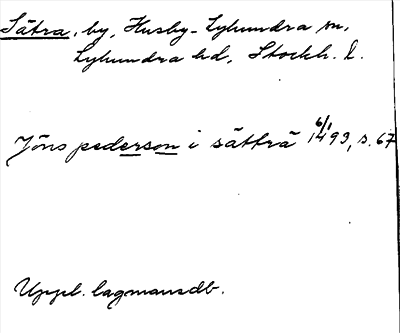 Sätra, by, Husby-Lyhundra sn,
Lyhundra hd, Stockh. l.
Jöns pederson i sätträ 6/1 1493, s. 67
Uppl. lagmansdb.